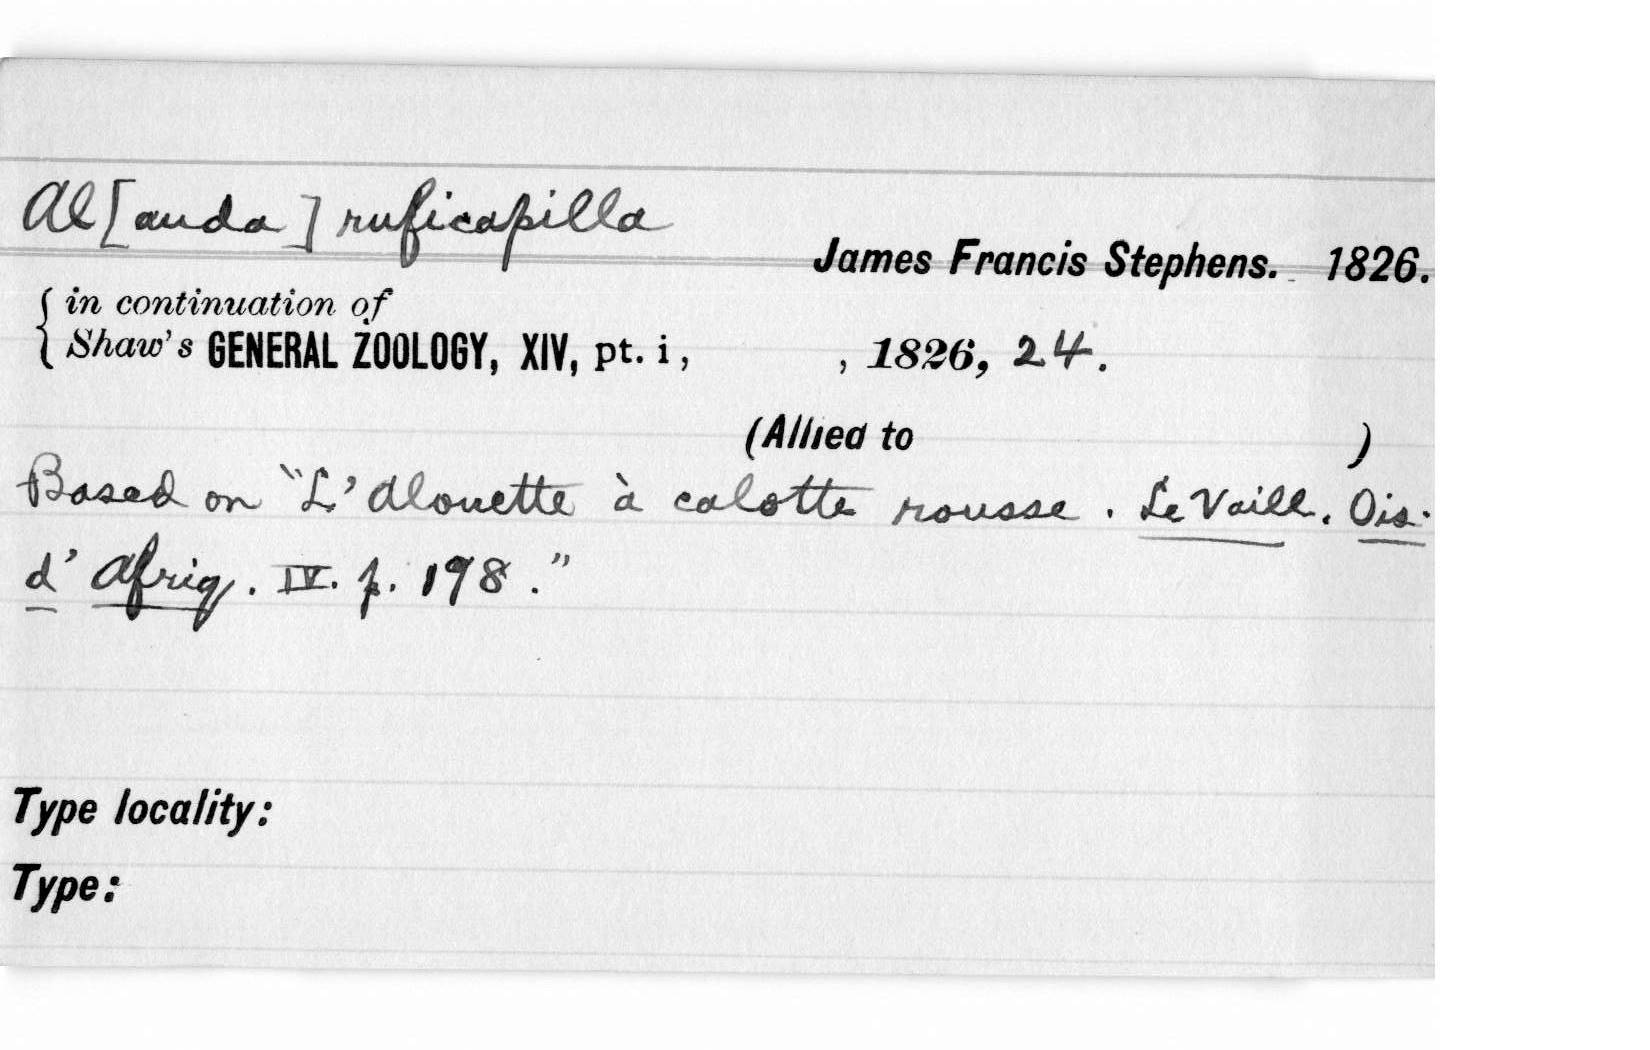 Al[auda] ruficapilla
James Francis Stephens. 1826.
{ in continuation of
Shaw's GENERAL ZOOLOGY, XIV, pt. i, , 1826, 24.
(Allied to )
Based on "L'Alouette à calotte rousse. Le Vaill. Ois.
d'Afriq. IV. p. 198."
Type locality:
Type: